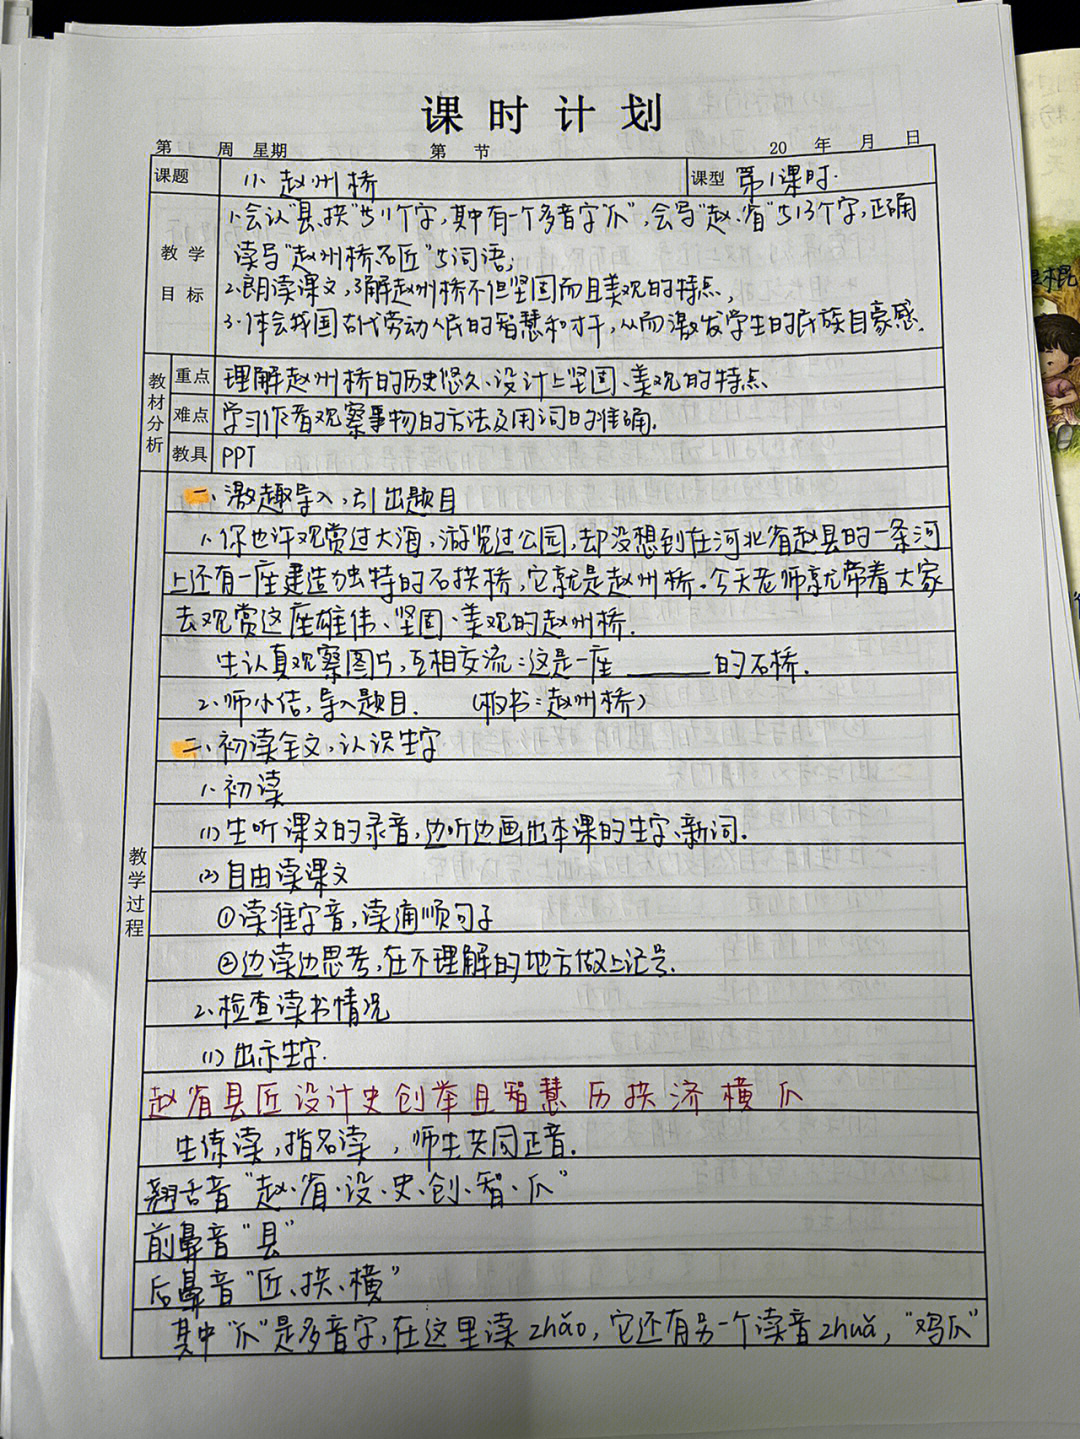 课时计划
第 周 星期 第 节 20 年 月 日
课题 11. 赵州桥 课型 第1课时.
教学目标
1.会认“县、拱”等11个字,其中有一个多音字“爪”,会写“赵、省”等13个字,正确
读写“赵州桥、石匠”等词语;
2.朗读课文,了解赵州桥不但坚固而且美观的特点,
3.体会我国古代劳动人民的智慧和才干,从而激发学生的民族自豪感.
教材分析
重点 理解赵州桥的历史悠久、设计上坚固、美观的特点
难点 学习作者观察事物的方法及用词的准确.
教具 PPT
教学过程
一、激趣导入,引出题目
1.你也许观赏过大海,游览过公园,却没想到在河北省赵县的一条河
上还有一座建造独特的石拱桥,它就是赵州桥.今天老师就带着大家
去观赏这座雄伟、坚固、美观的赵州桥.
生认真观察图片,互相交流:这是一座______的石桥.
2.师小结,导入题目. (板书:赵州桥)
二、初读全文,认识生字
1.初读
(1)生听课文的录音,边听边画出本课的生字、新词.
(2)自由读课文
①读准字音,读通顺句子
②边读边思考,在不理解的地方做上记号.
2.检查读书情况
(1)出示生字.
赵省县匠设计史创举且智慧 历拱济横爪
生练读,指名读,师生共同正音.
翘舌音“赵、省、设、史、创、智、爪”
前鼻音“县”
后鼻音“匠、拱、横”
其中“爪”是多音字,在这里读zhǎo,它还有另一个读音zhuǎ,“鸡爪”